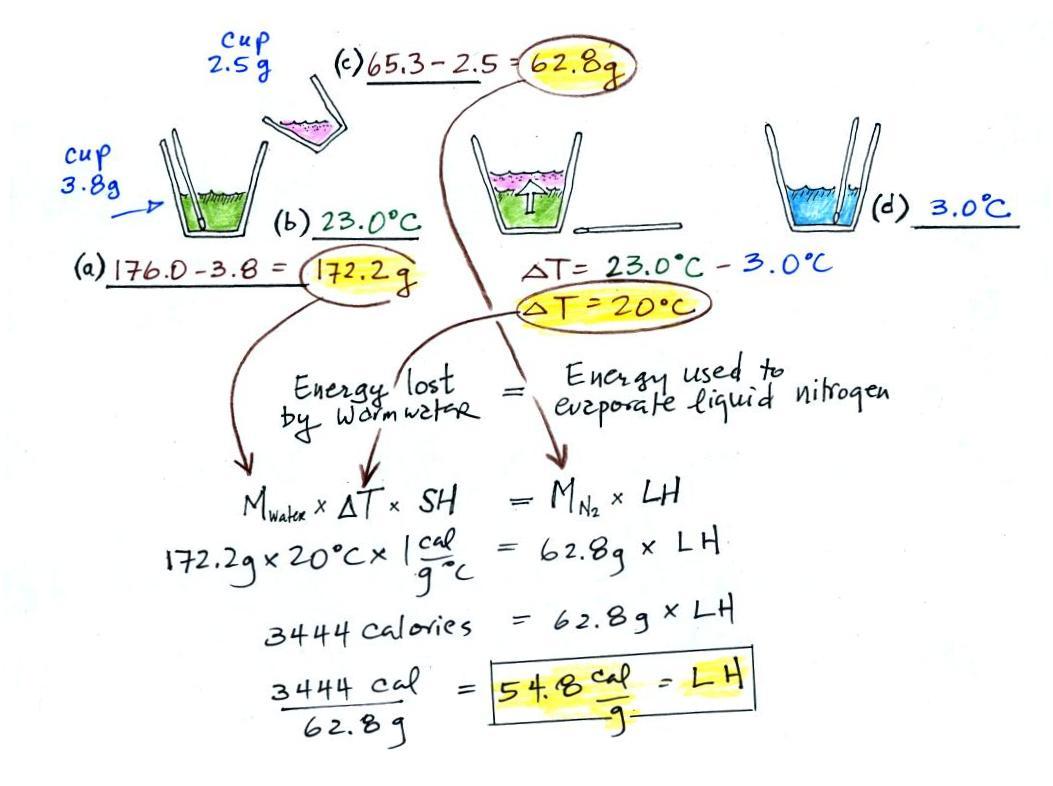 cup
2.5 g
(c) 65.3 - 2.5 = 62.8g
cup
3.8g
(b) 23.0°C
(d) 3.0°C
(a) 176.0 - 3.8 = 172.2 g
ΔT = 23.0°C - 3.0°C
ΔT = 20°C
Energy lost by warm water = Energy used to evaporate liquid nitrogen
M water x ΔT x SH = M N2 x LH
172.2g x 20°C x 1 cal/g °C = 62.8g x LH
3444 calories = 62.8 g x LH
3444 cal / 62.8 g = 54.8 cal/g = LH